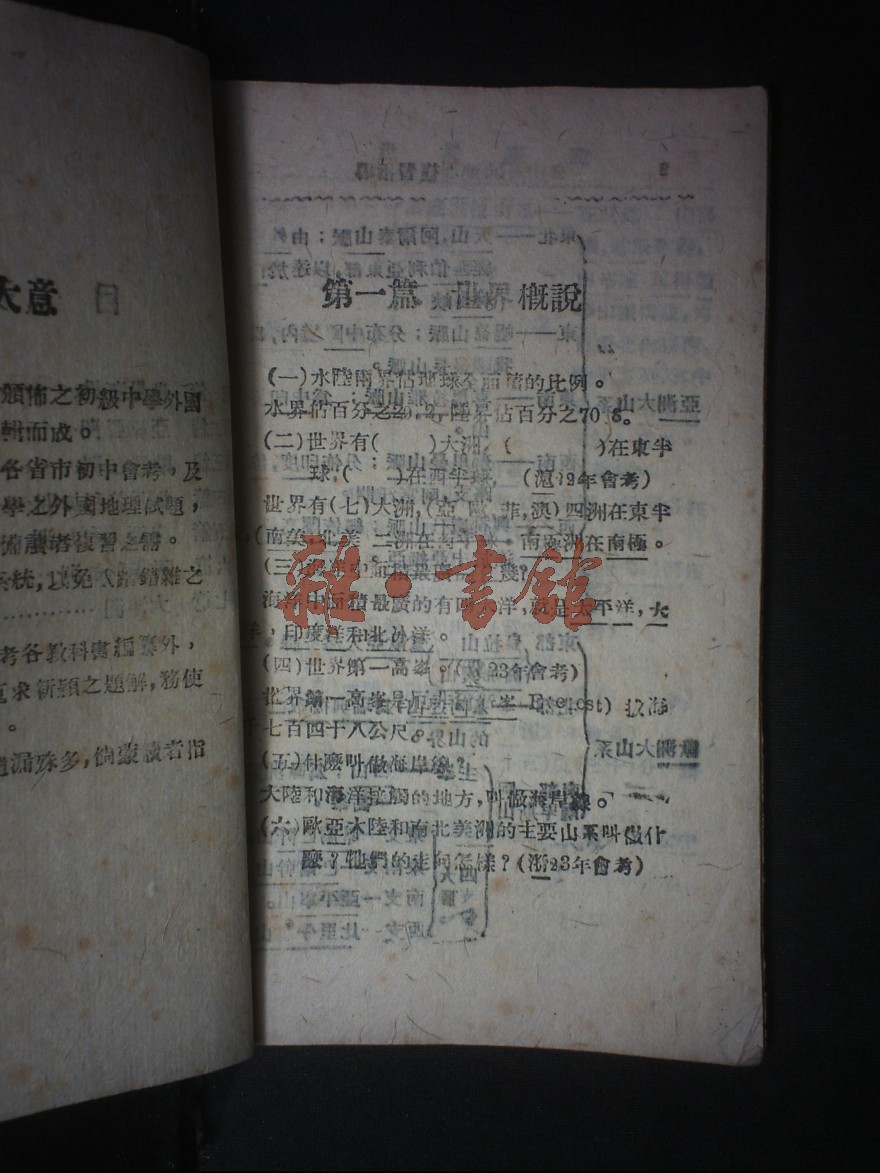 大意
頒佈之初級中學外國
輯而成。
各省市初中會考，及
學之外國地理試題，
備讀者複習之需。
系統，以免 錯雜之
考各教科書編纂外，
求新穎之題解，務使
。
漏殊多，倘蒙讀者指
第一篇 世界概說
(一)水陸兩界佔地球全面積的比例。
水界佔百分之29.2，陸界佔百分之70.8。
(二)世界有( )大洲，( )在東半
球，( )在西半球，(滬 年會考)
世界有(七)大洲，(亞，歐，菲，澳)四洲在東半
(南美，北美)二洲在西半球。南極洲在南極。
(三)海洋中面積最廣的有幾？
海洋中面積最廣的有四大洋，就是太平洋，大
，印度洋和北冰洋。
(四)世界第一高峯。( 23年會考)
世界第一高峯是 峯 拔海
七百四十八公尺。
(五)什麼叫做海岸線？
大陸和海洋接觸的地方，叫做海岸線。
(六)歐亞大陸和南北美洲的主要山系叫做什
麼？牠們的走向怎樣？(浙23年會考)
雜·書館